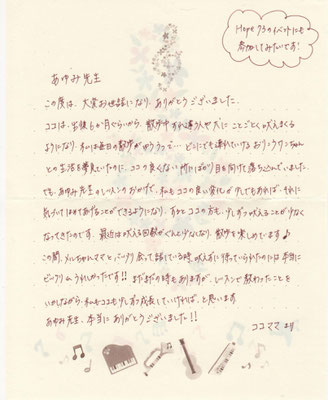 Hope 73のイベントにも
参加してみたいです!
あゆみ先生
この度は、大変お世話になり、ありがとうございました。
ココは、生後6か月ぐらいから、散歩中すれ違う人や犬に ことごとく吠えまくる
ようになり、私は毎日の散歩がゆううつで… どこにでも連れていける おりこうワンちゃん
との生活を夢見ていたのに、ココの良くない所にばかり目を向けて落ち込んでいました。
でも、あゆみ先生のレッスンのおかげで、私もココの良い変化が少しでもあれば、それに
気づいてほめてあげることができるようになり、するとココの方も、少しずつ吠えることが少なく
なってきたのです。最近は吠える回数がぐんと少なくなり、散歩を楽しめています♪
この間、メルちゃんママと バッタリ会って話している時 吠えずに待っていられたのには 本当に
ビックリ&うれしかったです!! まだまだの時もありますが、レッスンで教わったことを
いかしながら 私もココも少しずつ成長していければ、と思います
あゆみ先生、本当に ありがとうございました!!
ココママ より